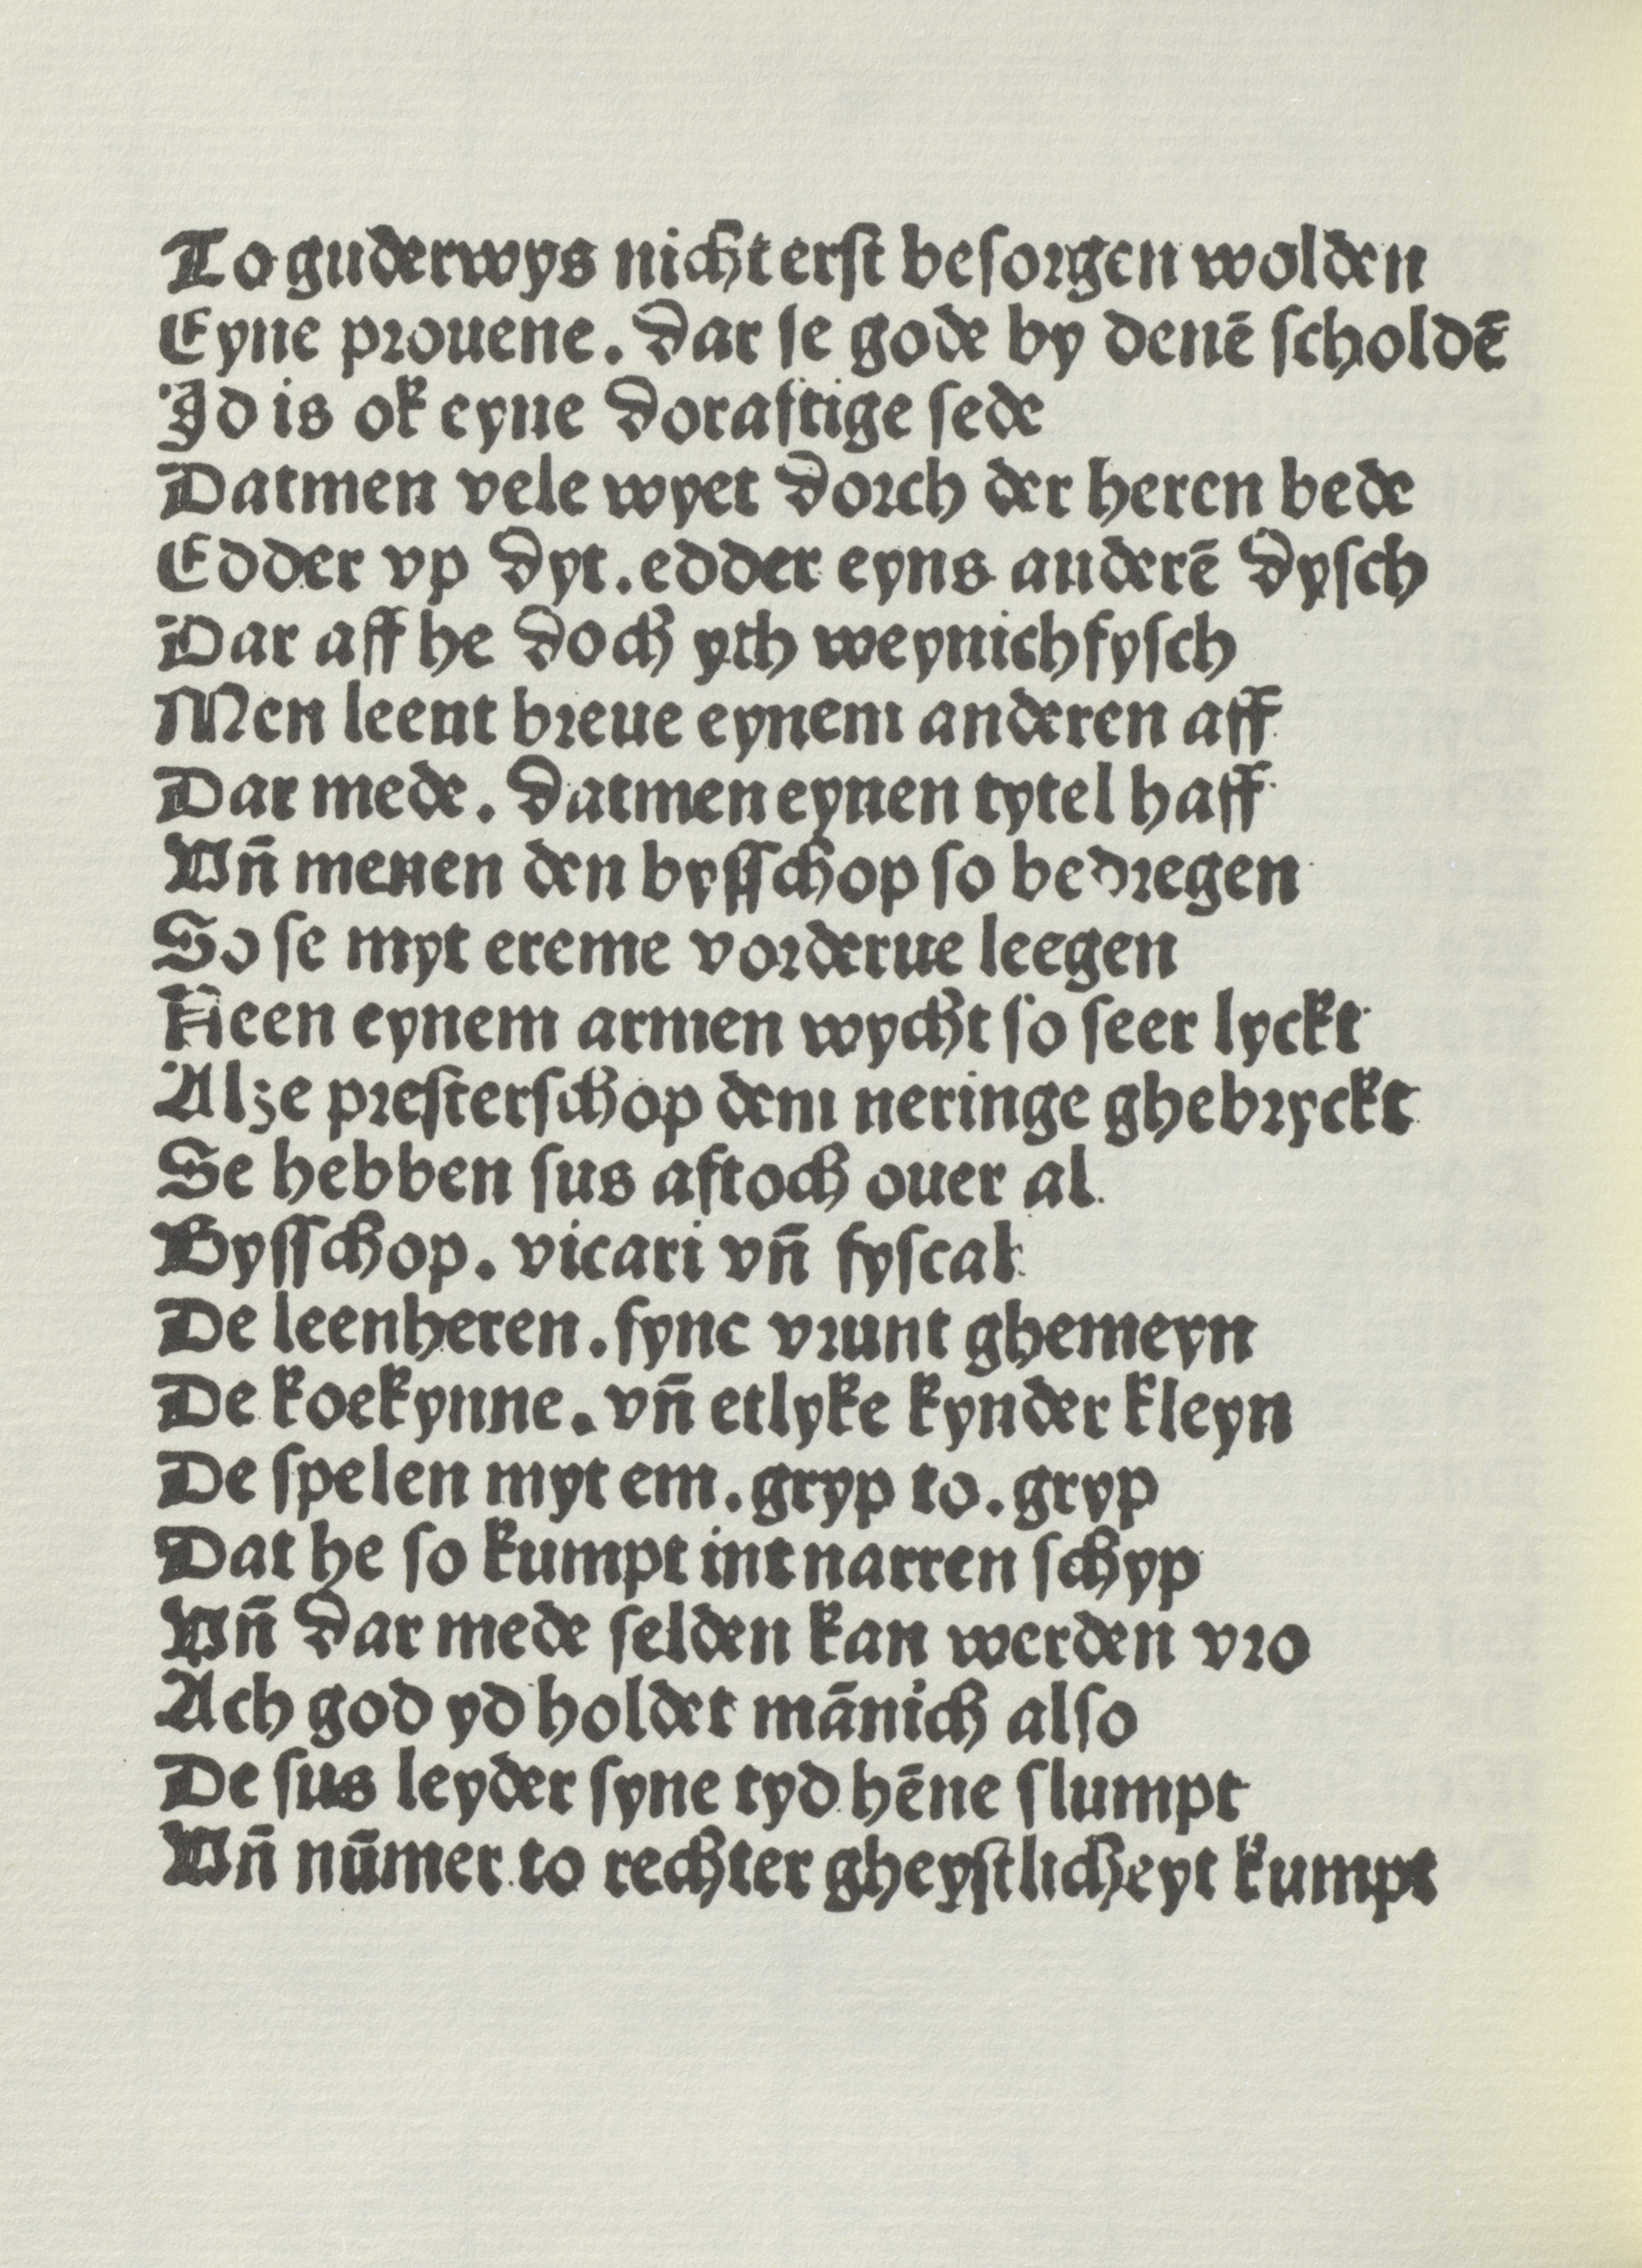 To guderwys nicht erst besorgen wolden
Eyne prouene. Dar se gode by denē scholdē
Jd is ok eyne doraftige sede
Datmen vele wyet dorch der heren bede
Edder vp dyt. edder eyns anderē dysch
Dar aff he doch yth weynich fysch
Men leent breue eynem anderen aff
Dar mede. datmen eynen tytel haff
Vn̄ menen den bysschop so bedregen
So se myt ereme vorderue leegen
Neen eynem armen wycht so seer lyckt
Alze presterschop dem neringe ghebryckt
Se hebben sus aftoch ouer al
Bysschop. vicari vn̄ fyscal
De leenheren. syne vrunt ghemeyn
De koekynne. vn̄ etlyke kynder kleyn
De spelen myt em. gryp to. gryp
Dat he so kumpt int narren schyp
Vn̄ dar mede selden kan werden vro
Ach god yd holdet mānich also
De sus leyder syne tyd hēne slumpt
Vn̄ nūmer to rechter gheystlicheyt kumpt